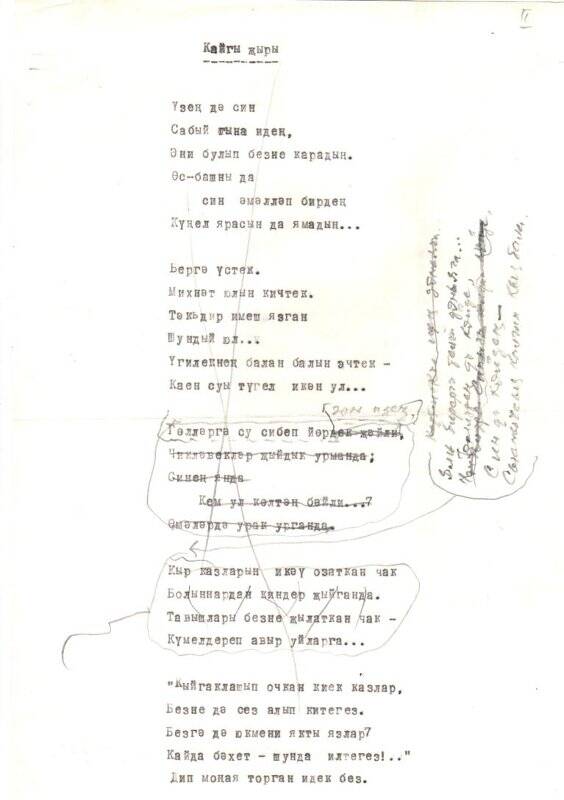 II
Кайгы җыры
Үзең дә син
Сабый гына идең,
Әни булып безне карадың.
Өс-башны да
син әмәлләп бирдең
Күңел ярасын да ямадың...
Бергә үстек.
Михнәт юлын кичтек.
Тәкъдир имеш язган
Шундый юл...
Үгилекнең балан балын эчтек -
Каен суы түгел икән ул...
гән идең,
Гөлләргә су сибеп йөрдек җәйли,
Чикләвекләр җыйдык урманда;
Синең янда
Кем ул көлтәң бәйли...?
Өмәләрдә урак урганда.
Кыр казларын икәү озаткан чак
Болыннардан җиндер җыйганда.
Тавышлары безне җылаткан чак -
Күмелдереп авыр уйларга...
"Кыйгаклашып очкан киек казлар,
Безне дә сез алып китегез.
Безгә дә юкмени якты язлар?
Кайда бәхет - шунда илтегез!.."
Дип моңая торган идек без.